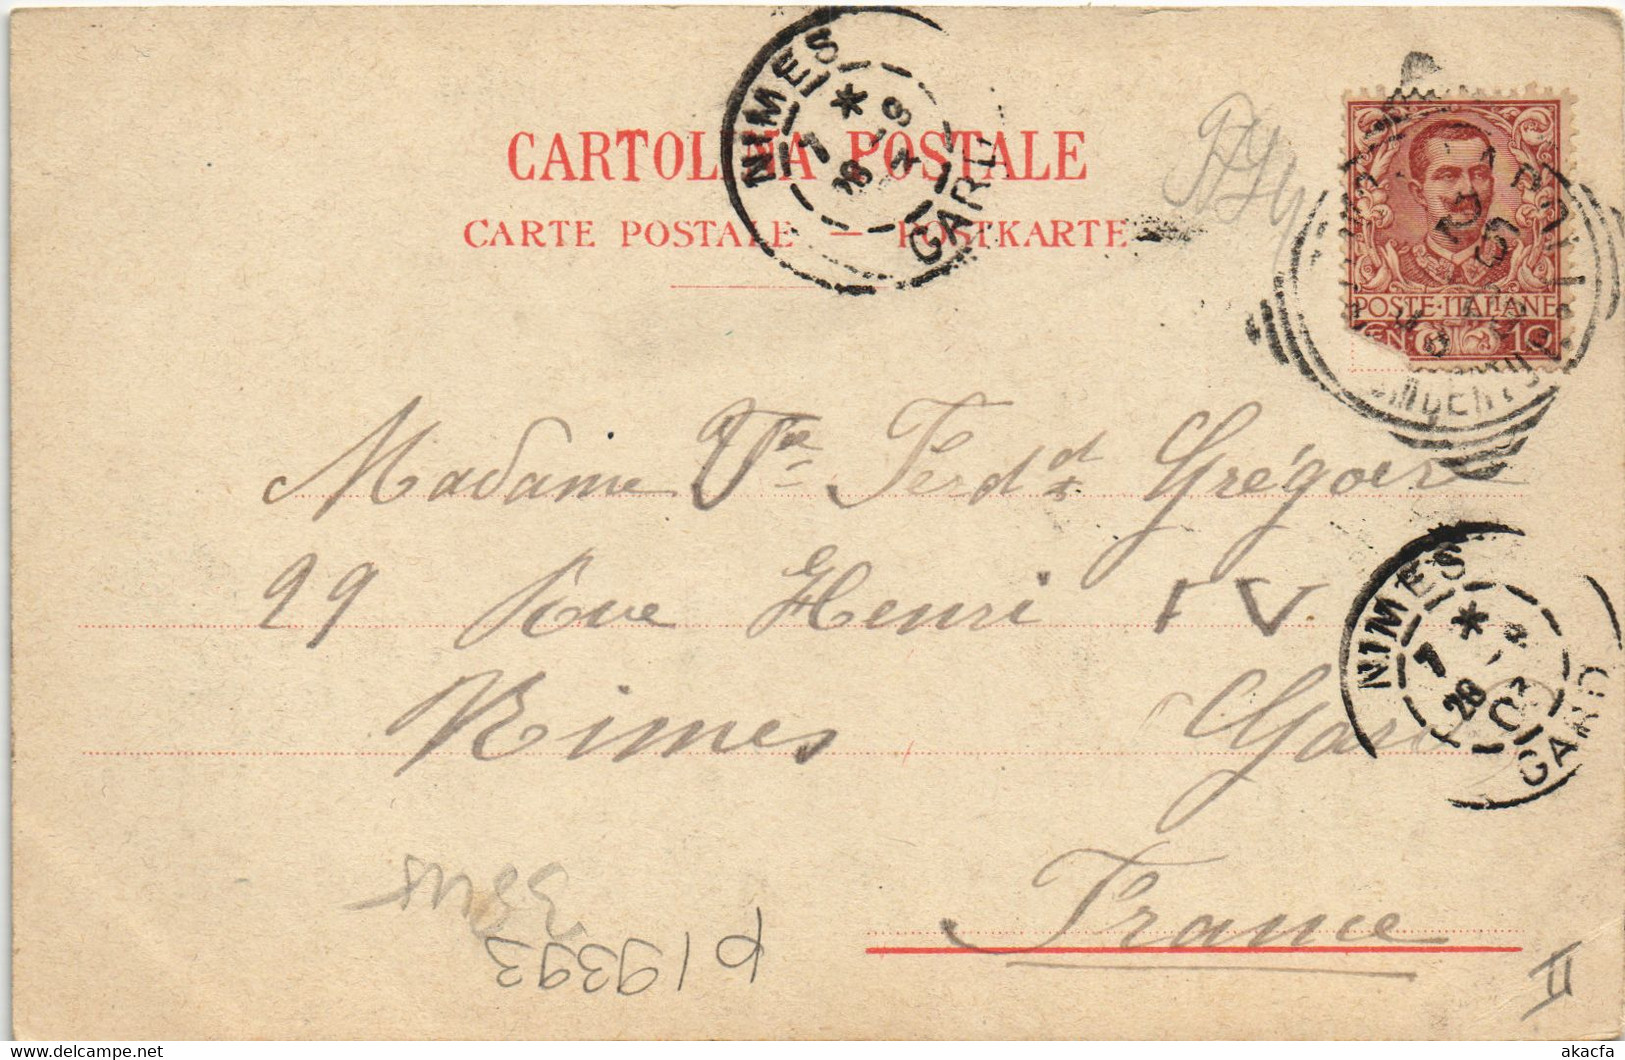 CARTOLINA POSTALE
CARTE POSTALE — POSTKARTE
POSTE·ITALIANE
CEN. 10
NIMES
GARD
Madame Vve Ferdd Grégoire
29 Rue Henri IV
NIMES
GARD
Nimes Gard
France
p19393
II
akacfa